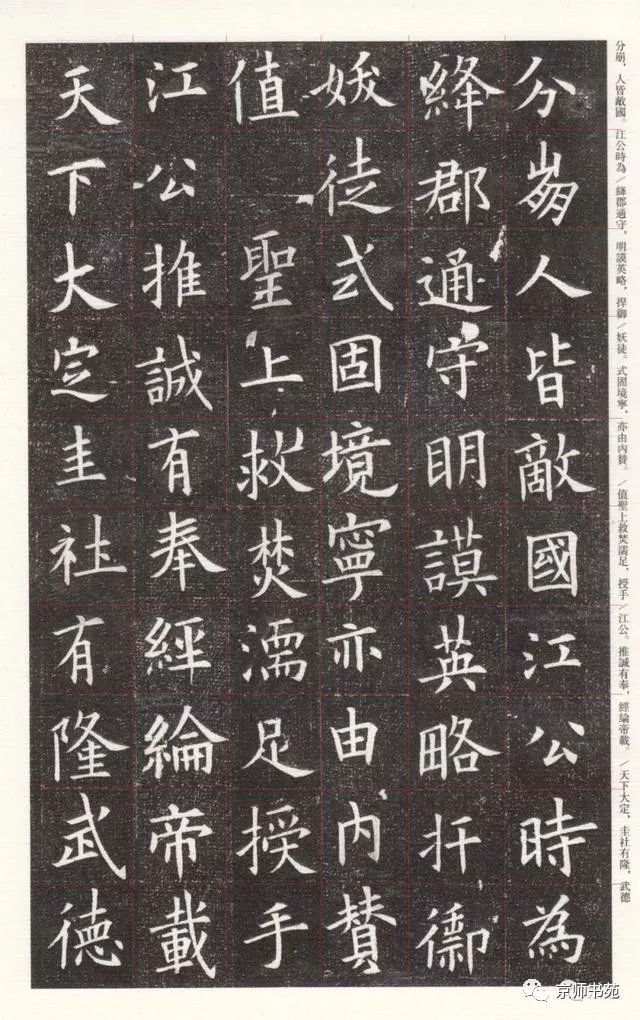 分崩人皆敵國江公時為
絳郡通守明謨英略扞御
妖徒式固境寧亦由內贊
值聖上救焚濡足授手
江公推誠有奉經綸帝載
天下大定圭社有隆武德
分崩，人皆敵國。江公時為／絳郡通守，明謨英略，捍御／妖徒。式固境寧，亦由內贊。／值聖上救焚濡足，授手／江公。推誠有奉，經綸帝載。／天下大定，圭社有隆，武德
京师书苑